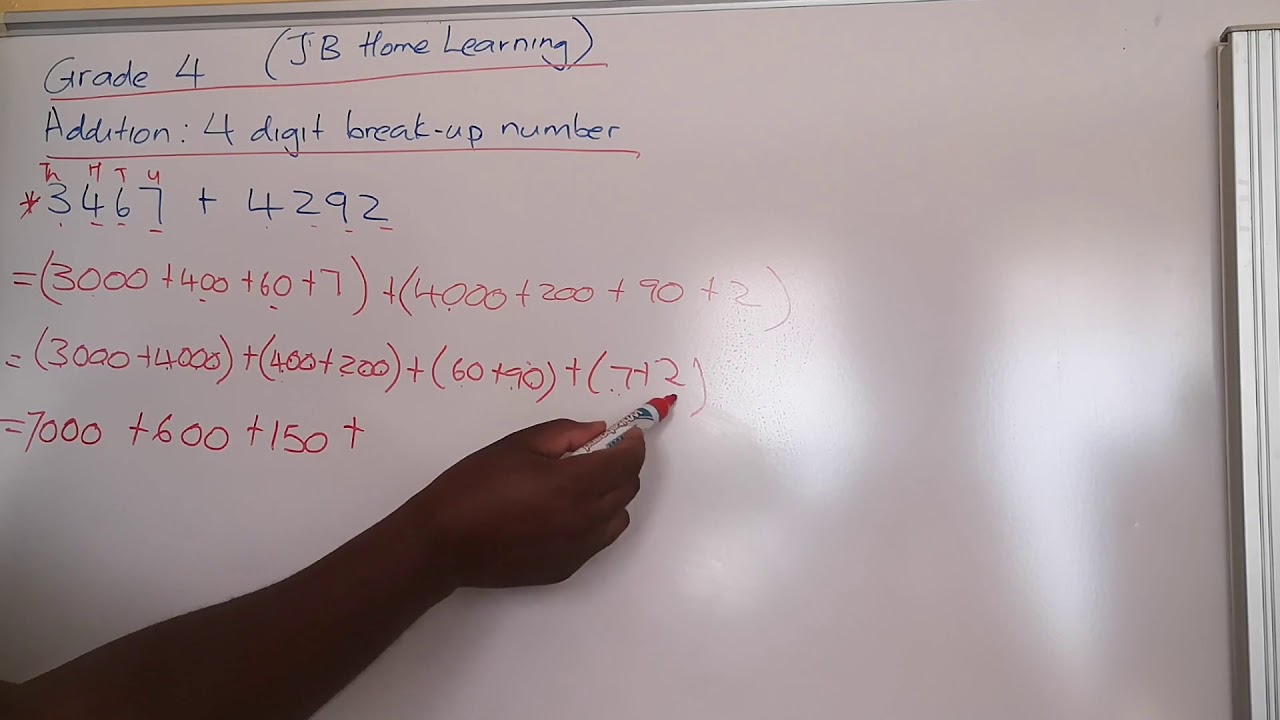 Grade 4 (JB Home Learning)
Addition: 4 digit break-up number
Th H T U
*3467 + 4292
=(3000+400+60+7)+(4000+200+90+2)
=(3000+4000)+(400+200)+(60+90)+(7+2)
=7000+600+150+